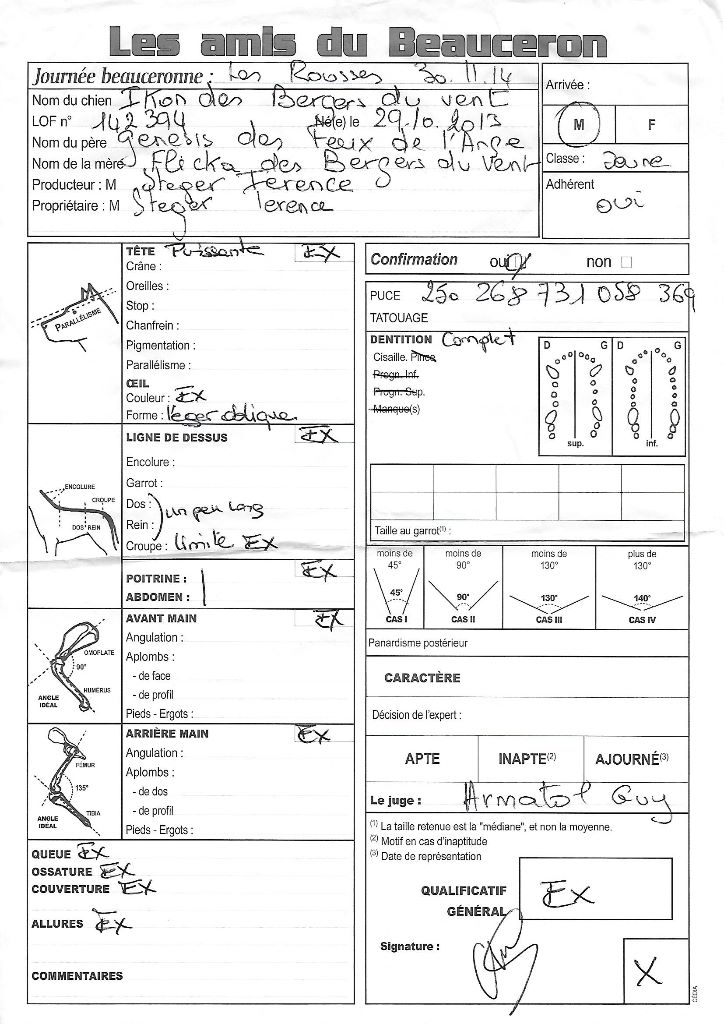 Les amis du Beauceron
Journée beauceronne : Les Rousses 30.11.14
Nom du chien Ikon des Bergers du vent
LOF n° 142 394 Né(e) le 29.10.2013
Nom du père Genesis des Feux de l'Ange
Nom de la mère Flicka des Bergers du vent
Producteur : M Steger Terence
Propriétaire : M Steger Terence
Arrivée :
M F
Classe : Jeune
Adhérent
oui
TÊTE Puissante EX
Crâne :
Oreilles :
Stop :
Chanfrein :
Pigmentation :
Parallélisme :
ŒIL
Couleur : EX
Forme : léger oblique
PARALLÉLISME
LIGNE DE DESSUS EX
Encolure :
Garrot :
Dos : un peu long
Rein :
Croupe : limite EX
ENCOLURE
CROUPE
DOS REIN
POITRINE : EX
ABDOMEN :
AVANT MAIN EX
Angulation :
Aplombs :
- de face
- de profil
Pieds - Ergots :
OMOPLATE
90°
HUMERUS
ANGLE IDÉAL
ARRIÈRE MAIN EX
Angulation :
Aplombs :
- de dos
- de profil
Pieds - Ergots :
FEMUR
135°
TIBIA
ANGLE IDÉAL
QUEUE EX
OSSATURE EX
COUVERTURE EX
ALLURES EX
COMMENTAIRES
Confirmation oui non
PUCE 250 268 731 058 369
TATOUAGE
DENTITION Complet
Cisaille. Pince
Progn. Inf.
Progn. Sup.
Manque(s)
D G D G
sup. inf.
Taille au garrot(1) :
moins de 45° moins de 90° moins de 130° plus de 130°
45° 90° 130° 140°
CAS I CAS II CAS III CAS IV
Panardisme postérieur
CARACTÈRE
Décision de l'expert :
APTE INAPTE(2) AJOURNÉ(3)
Le juge : Armatol Guy
(1) La taille retenue est la "médiane", et non la moyenne.
(2) Motif en cas d'inaptitude
(3) Date de représentation
QUALIFICATIF GÉNÉRAL EX
Signature :
X